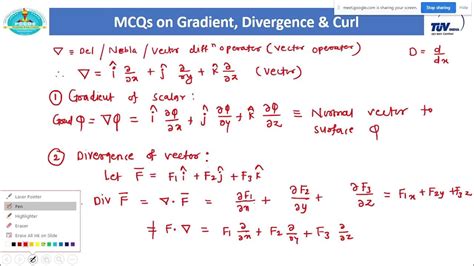 MCQs on Gradient, Divergence & Curl
meet.google.com is sharing your screen.
Stop sharing
Hide
TÜV
INDIA
∇ ≡ Del / Nebla / vector diffⁿ operator (vector operator)
D = d/dx
∴ ∇ = î ∂/∂x + ĵ ∂/∂y + k̂ ∂/∂z (vector)
① Gradient of scalar:
Grad φ = ∇φ = î ∂φ/∂x + ĵ ∂φ/∂y + k̂ ∂φ/∂z ≡ Normal vector to
surface φ
② Divergence of vector:
Let F̅ = F₁î + F₂ĵ + F₃k̂
Div F̅ = ∇·F̅ = ∂F₁/∂x + ∂F₂/∂y + ∂F₃/∂z = F₁x + F₂y + F₃z
≠ F·∇ = F₁ ∂/∂x + F₂ ∂/∂y + F₃ ∂/∂z
Laser Pointer
Pen
Highlighter
Eraser
Erase All Ink on Slide